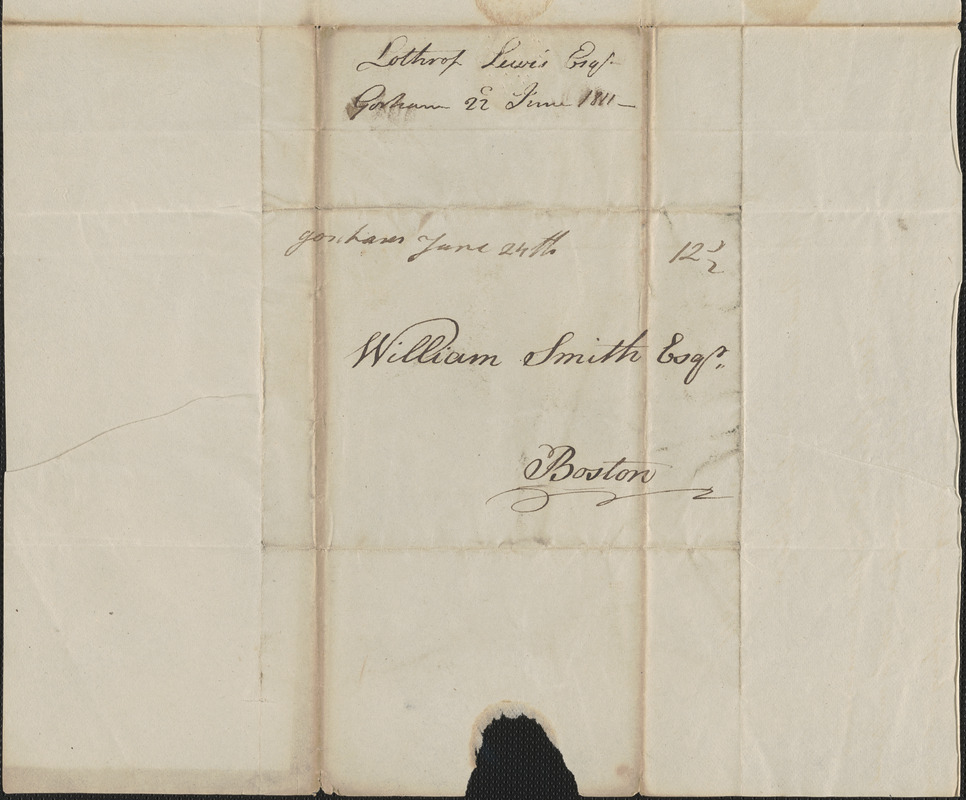 Lothrop Lewis Esqr
Gorham 22 June 1811
gorham June 24th 12 1/2
William Smith Esqr.
Boston